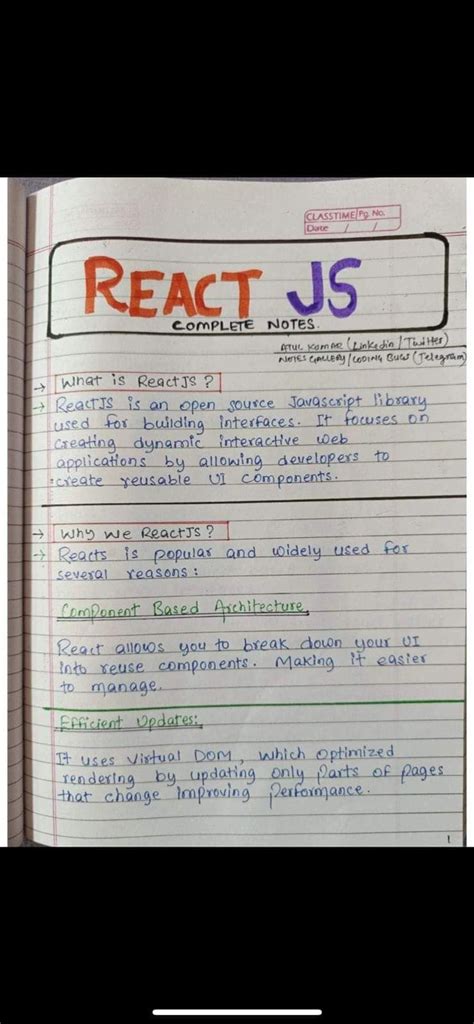 CLASSTIME Pg. No.
Date / /
REACT JS
COMPLETE NOTES.
Atul Kumar (Linkedin / Twitter)
NOTES GALLERY / CODING BUGS (Telegram)
→ What is ReactJS ?
→ ReactJS is an open source Javascript library
used for building interfaces. It focuses on
creating dynamic interactive web
applications by allowing developers to
create reusable UI components.
→ Why we ReactJS ?
→ Reacts is popular and widely used for
several reasons :
Component Based Architecture,
React allows you to break down your UI
into reuse components. Making it easier
to manage.
Efficient Updates:,
It uses virtual DOM, which optimized
rendering by updating only parts of pages
that change improving performance.
1